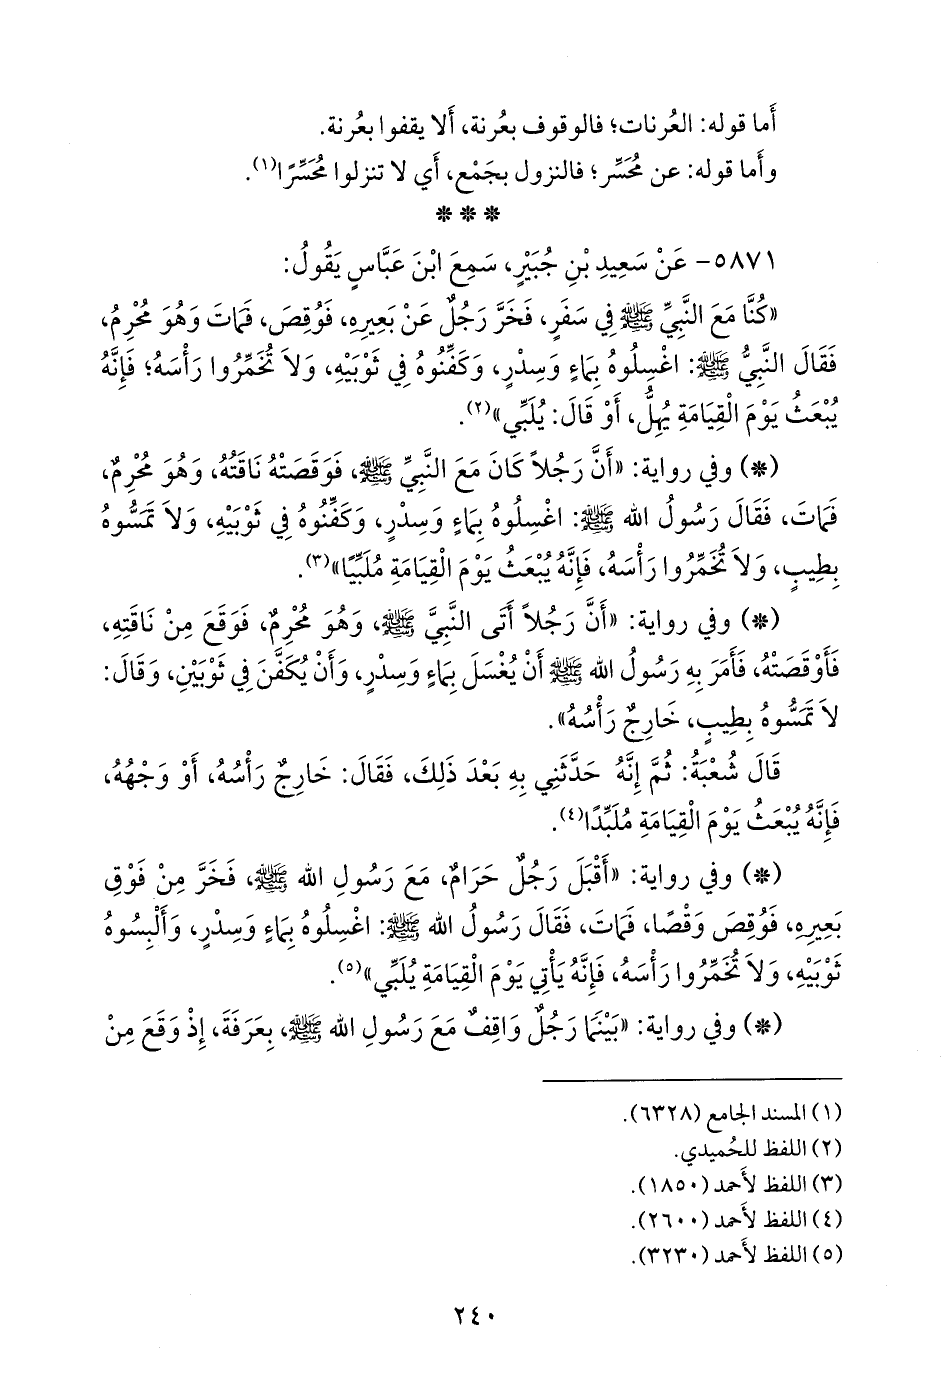 أَما قوله: العُرنات؛ فالوقوف بعُرنة، أَلا يقفوا بعُرنة.
وأَما قوله: عن مُحَسِّر؛ فالنزول بجَمْع، أَي لا تنزلوا مُحَسِّرًا(١).
* * *
٥٨٧١- عَنْ سَعِيدِ بْنِ جُبَيْرٍ، سَمِعَ ابْنَ عَبَّاسٍ يَقُولُ:
«كُنَّا مَعَ النَّبِيِّ ﷺ فِي سَفَرٍ، فَخَرَّ رَجُلٌ عَنْ بَعِيرِهِ، فَوُقِصَ، فَمَاتَ وَهُوَ مُحْرِمٌ،
فَقَالَ النَّبِيُّ ﷺ: اغْسِلُوهُ بِمَاءٍ وَسِدْرٍ، وَكَفِّنُوهُ فِي ثَوْبَيْهِ، وَلاَ تُخَمِّرُوا رَأْسَهُ؛ فَإِنَّهُ
يُبْعَثُ يَوْمَ الْقِيَامَةِ يُهِلُّ، أَوْ قَالَ: يُلَبِّي»(٢).
(*) وفي رواية: «أَنَّ رَجُلاً كَانَ مَعَ النَّبِيِّ ﷺ، فَوَقَصَتْهُ نَاقَتُهُ، وَهُوَ مُحْرِمٌ،
فَمَاتَ، فَقَالَ رَسُولُ الله ﷺ: اغْسِلُوهُ بِمَاءٍ وَسِدْرٍ، وَكَفِّنُوهُ فِي ثَوْبَيْهِ، وَلاَ تَمَسُّوهُ
بِطِيبٍ، وَلاَ تُخَمِّرُوا رَأْسَهُ، فَإِنَّهُ يُبْعَثُ يَوْمَ الْقِيَامَةِ مُلَبِّيًا»(٣).
(*) وفي رواية: «أَنَّ رَجُلاً أَتَى النَّبِيَّ ﷺ، وَهُوَ مُحْرِمٌ، فَوَقَعَ مِنْ نَاقَتِهِ،
فَأَوْقَصَتْهُ، فَأَمَرَ بِهِ رَسُولُ الله ﷺ أَنْ يُغْسَلَ بِمَاءٍ وَسِدْرٍ، وَأَنْ يُكَفَّنَ فِي ثَوْبَيْنِ، وَقَالَ:
لاَ تَمَسُّوهُ بِطِيبٍ، خَارِجٌ رَأْسُهُ».
قَالَ شُعْبَةُ: ثُمَّ إِنَّهُ حَدَّثَنِي بِهِ بَعْدَ ذَلِكَ، فَقَالَ: خَارِجٌ رَأْسُهُ، أَوْ وَجْهُهُ،
فَإِنَّهُ يُبْعَثُ يَوْمَ الْقِيَامَةِ مُلَبِّدًا(٤).
(*) وفي رواية: «أَقْبَلَ رَجُلٌ حَرَامٌ، مَعَ رَسُولِ الله ﷺ، فَخَرَّ مِنْ فَوْقِ
بَعِيرِهِ، فَوُقِصَ وَقْصًا، فَمَاتَ، فَقَالَ رَسُولُ الله ﷺ: اغْسِلُوهُ بِمَاءٍ وَسِدْرٍ، وَأَلْبِسُوهُ
ثَوْبَيْهِ، وَلاَ تُخَمِّرُوا رَأْسَهُ، فَإِنَّهُ يَأْتِي يَوْمَ الْقِيَامَةِ يُلَبِّي»(٥).
(*) وفي رواية: «بَيْنَمَا رَجُلٌ وَاقِفٌ مَعَ رَسُولِ الله ﷺ، بِعَرَفَةَ، إِذْ وَقَعَ مِنْ
(١) المسند الجامع (٦٣٢٨).
(٢) اللفظ للحُميدي.
(٣) اللفظ لأَحمد (١٨٥٠).
(٤) اللفظ لأَحمد (٢٦٠٠).
(٥) اللفظ لأَحمد (٣٢٣٠).
٢٤٠